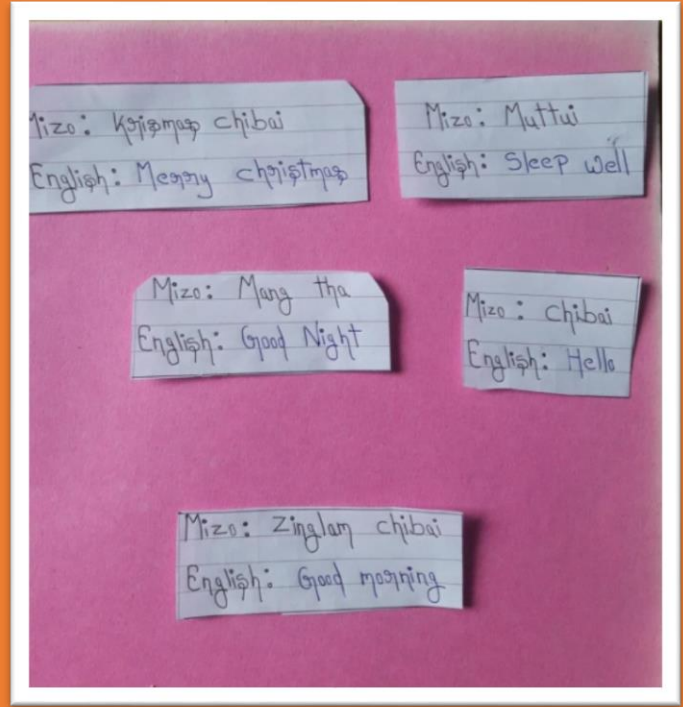 Mizo: Krismas chibai
English: Merry christmas
Mizo: Muttui
English: Sleep well
Mizo: Mang tha
English: Good Night
Mizo: chibai
English: Hello
Mizo: Zinglam chibai
English: Good morning